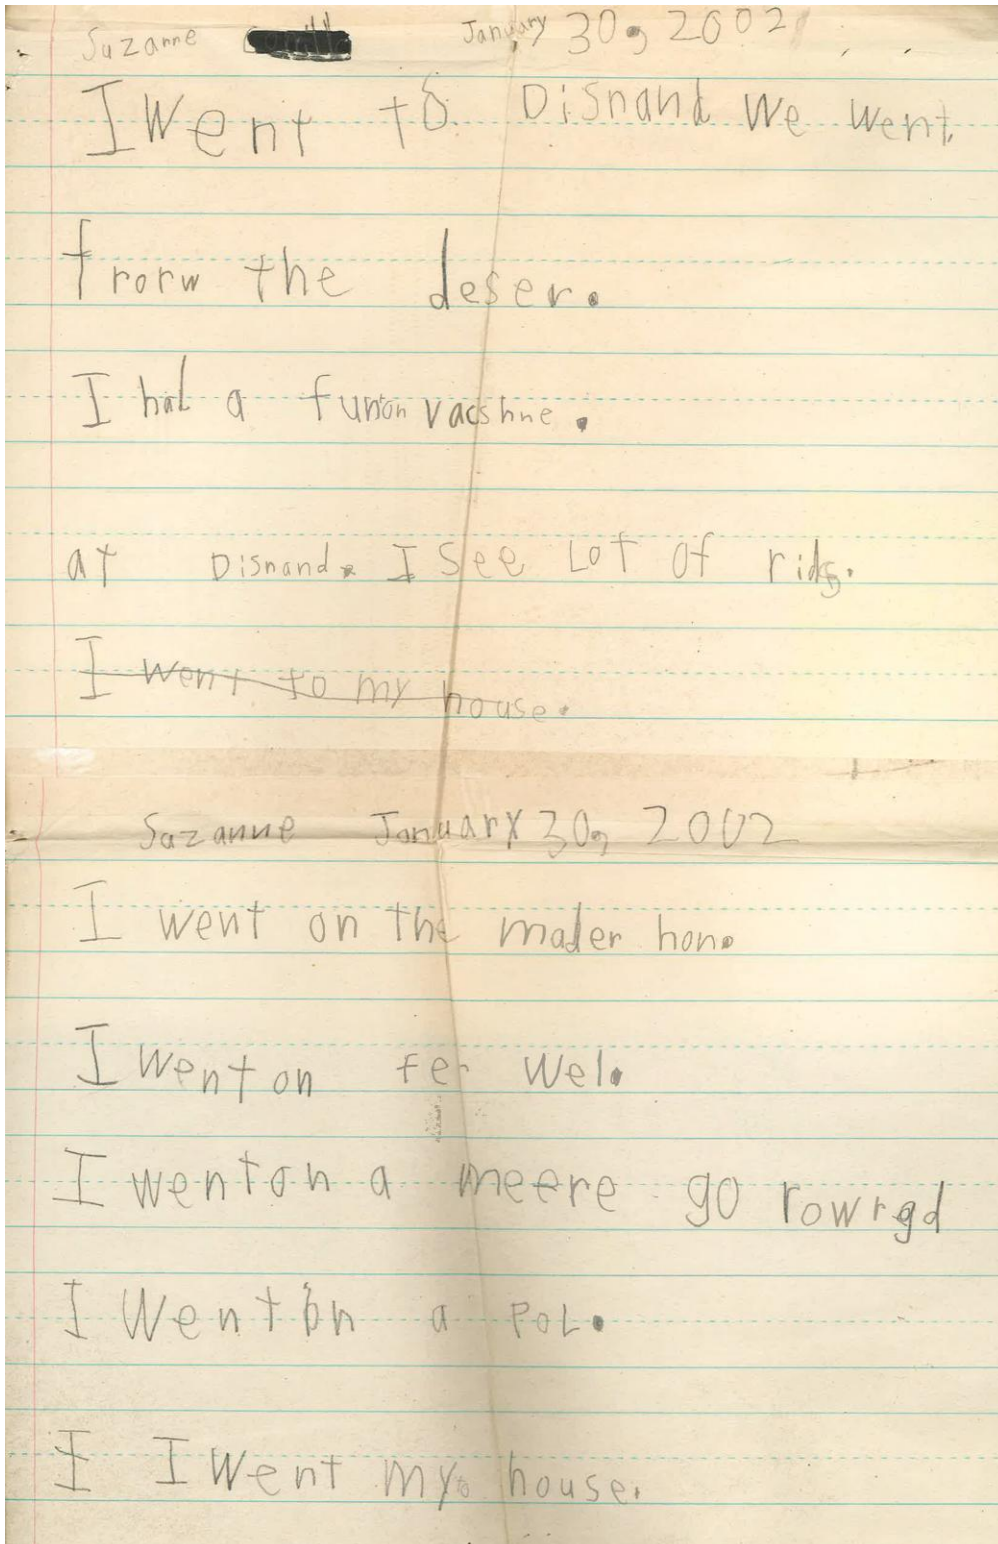 Suzanne January 30, 2002
I Went to Disnand We went
frorw the deser.
I had a funon vacshne.
at Disnand. I see Lot of rids.
I went to my house.
Suzanne January 30, 2002
I went on the mader hon.
I went on fer wel.
I went on a meere go rowrgd
I went on a poL.
I I went my to house.